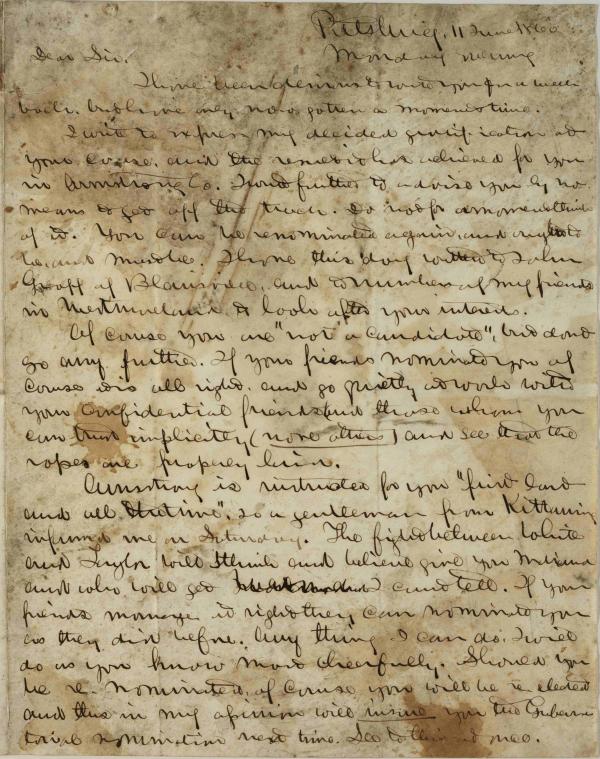 Pittsburg, 11 June 1860
Dear Sir. Monday morning
I have been desirous to write you for a week
back, but have only now gotten a moments time.
I write to express my decided gratification at
your course, and the result it has achieved for you
in Armstrong Co. I would further to advise you by no
means to get off the track. Do not for a moment think
of it. You can be renominated again, and ought to
be, and must be. I have this day written to John
Graff of Blairsville, and to number of my friends
in Westmoreland to look after your interests.
Of course you are "not a candidate", but dont
go any further. If your friends nominate you of
course it is all right, and go quietly at work with
your confidential friends and those whom you
can trust implicitly (none others) and see that the
ropes are properly laid.
Armstrong is instructed for you "first last
and all the time", so a gentleman from Kittanning
informed me on Saturday. The fight between White
and Taylor will I think and believe give you Indiana
and who will get I cant tell. If your
friends manage it right they can nominate you
as they did before. Any thing I can do, I will
do as you know most cheerfully. Should you
be re-nominated, of course you will be re elected
and this in my opinion will insure you the Guberna
torial nomination next time. See to this at once.